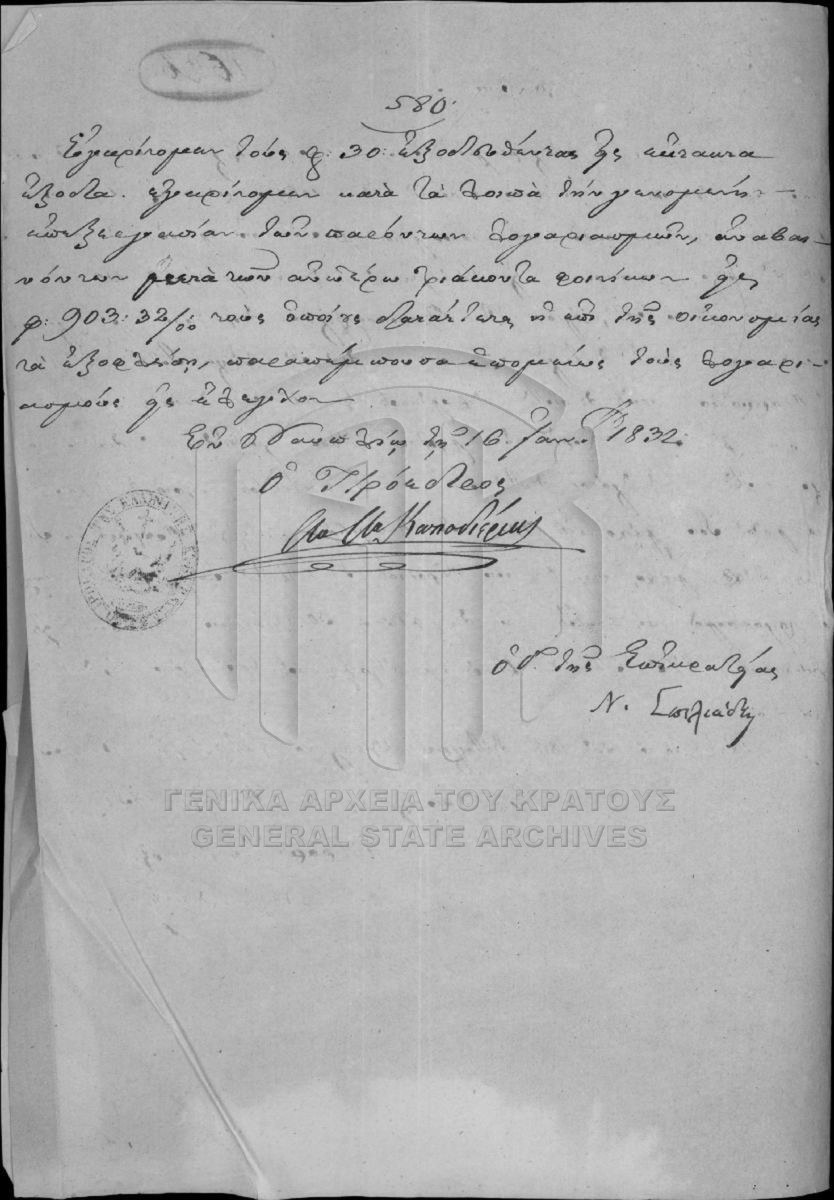 580.
Ἐγκρίνομεν τοὺς φ: 30: ἐξοδευθέντας εἰς ἔκτακτα
ἔξοδα. ἐγκρίνομεν κατὰ τὰ λοιπὰ τὴν γενομένην
ἐπεξεργασίαν τῶν παρόντων λογαριασμῶν, ἀναβαι-
νόντων μετὰ τῶν ἀνωτέρω τριάκοντα φοινίκων εἰς
φ: 903: 32/00 τοὺς ὁποίους διατάττεται ἡ ἐπὶ τῆς οἰκονομίας
νὰ ἐξοφλήσῃ, παραπέμπουσα ἑπομένως τοὺς λογαρι-
ασμοὺς εἰς ἔλεγχον
Ἐν Ναυπλίῳ τῇ 16 Ἰαν. 1832.
Ὁ Πρόεδρος
Καποδίστριας
ὁ Γ. τῆς Ἐπικρατείας
Ν. Σπηλιάδης
ΓΕΝΙΚΑ ΑΡΧΕΙΑ ΤΟΥ ΚΡΑΤΟΥΣ
GENERAL STATE ARCHIVES